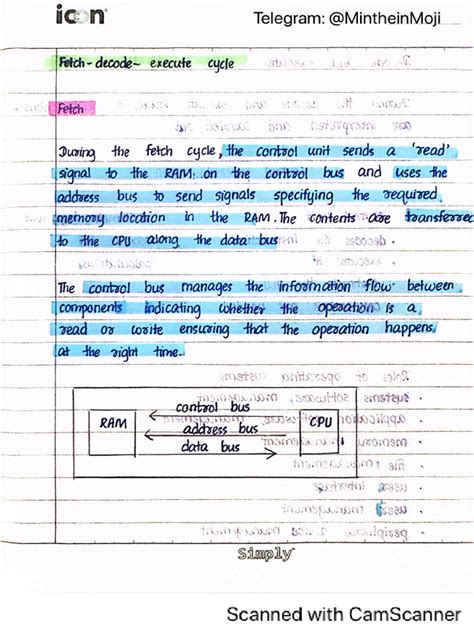 icon
Telegram: @MintheinMoji
Fetch-decode- execute cycle
Fetch
During the fetch cycle, the control unit sends a 'read'
signal to the RAM on the control bus and uses the
address bus to send signals specifying the required
memory location in the RAM. The contents are transferred
to the CPU along the data bus
The control bus manages the information flow between
components indicating whether the operation is a
read or write ensuring that the operation happens
at the right time.
RAM
control bus
address bus
data bus
CPU
Simply
Scanned with CamScanner